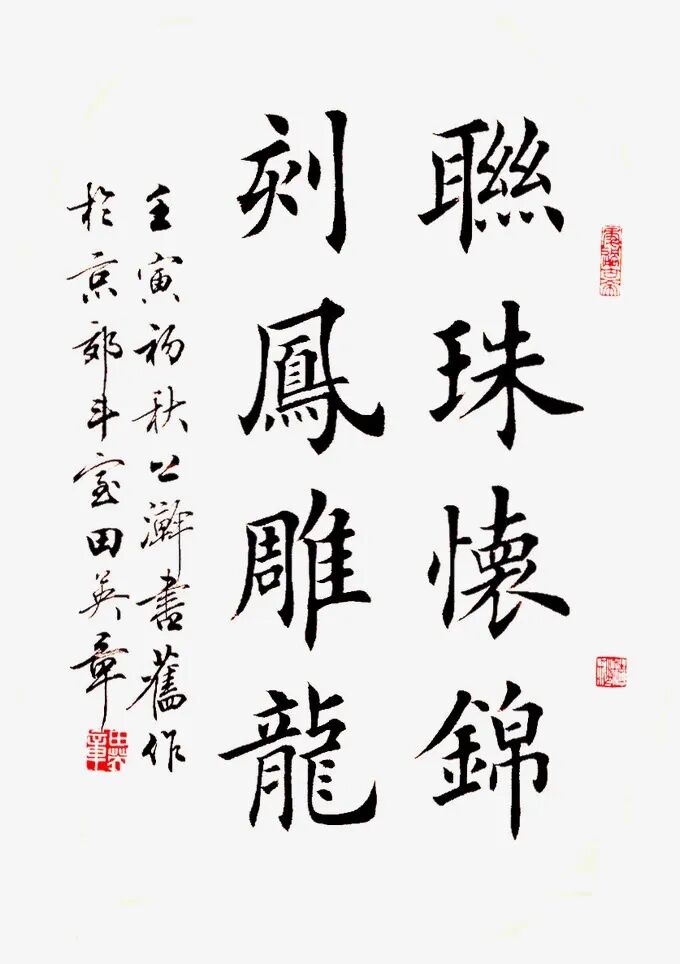 聯珠懷錦
刻鳳雕龍
壬寅初秋公澣書舊作
於京郊斗室田英章